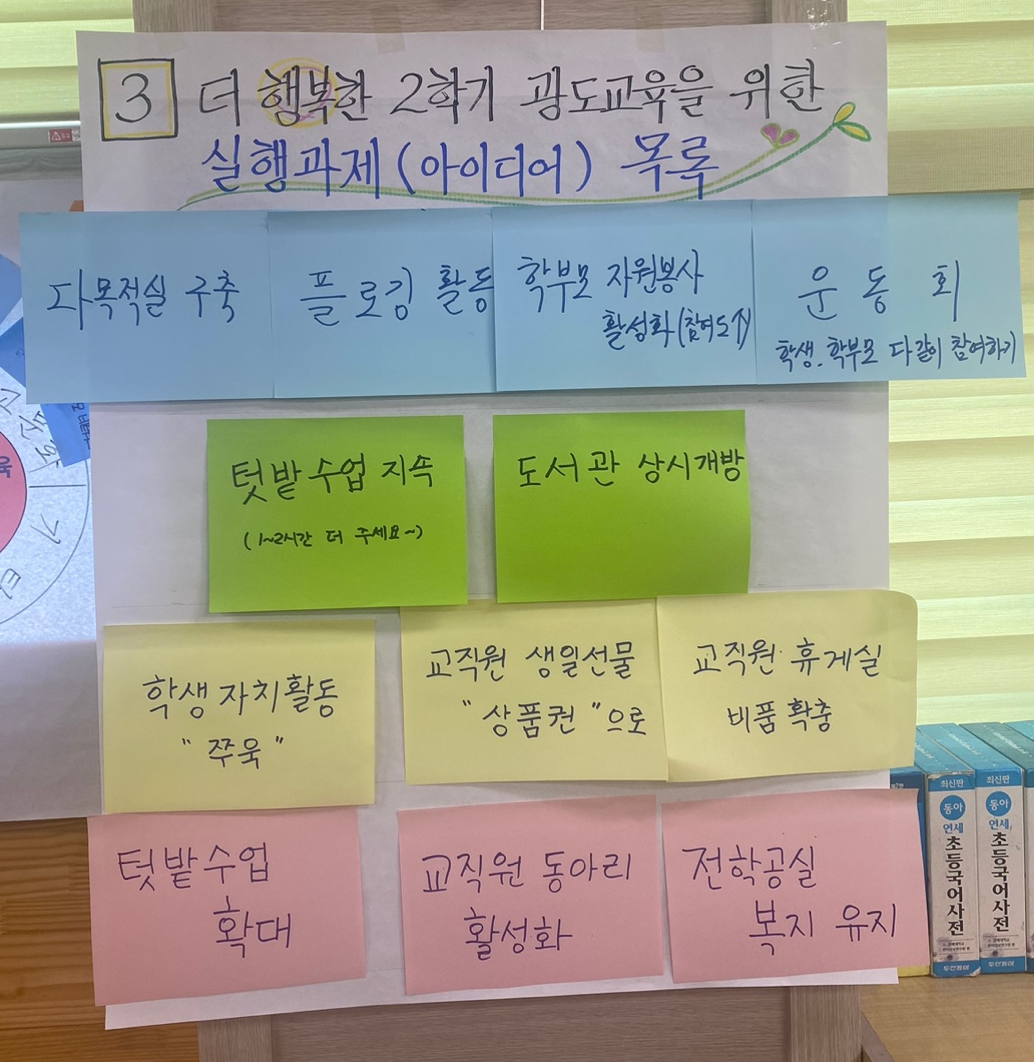 3 더 행복한 2학기 광도교육을 위한
실행과제 (아이디어) 목록
다목적실 구축
플로킹 활동
학부모 자원봉사
활성화 (참여도↑)
운동회
학생.학부모 다같이 참여하기
텃밭수업 지속
(1~2시간 더 주세요~)
도서관 상시개방
학생자치활동
"쭈욱"
교직원 생일선물
"상품권"으로
교직원 휴게실
비품확충
텃밭수업
확대
교직원 동아리
활성화
전학공실
복지 유지
최신판
동아
연세
초등국어사전
두산동아
최신판
동아
연세
초등국어사전
두산동아